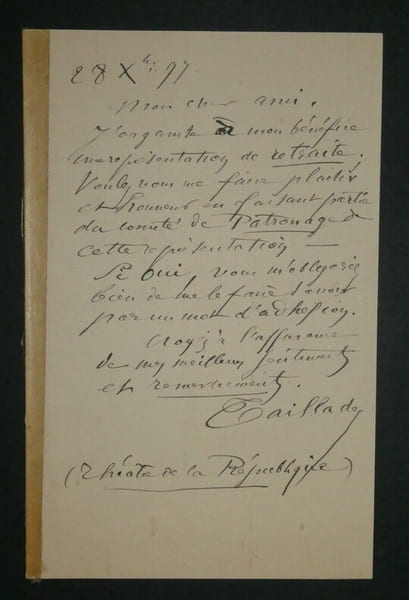 28 Xbre 97.
Mon cher ami.
J'organise à mon bénéfice
une représentation de retraite.
Voulez vous me faire plaisir
et honneur en faisant partie
du comité de Patronage de
cette représentation —
Si oui, vous m'obligerez
bien de me le faire savoir
par un mot d'adhésion.
Croyez à l'assurance
de mes meilleurs sentiments
et remerciements.
Taillade
(Théâtre de la République)